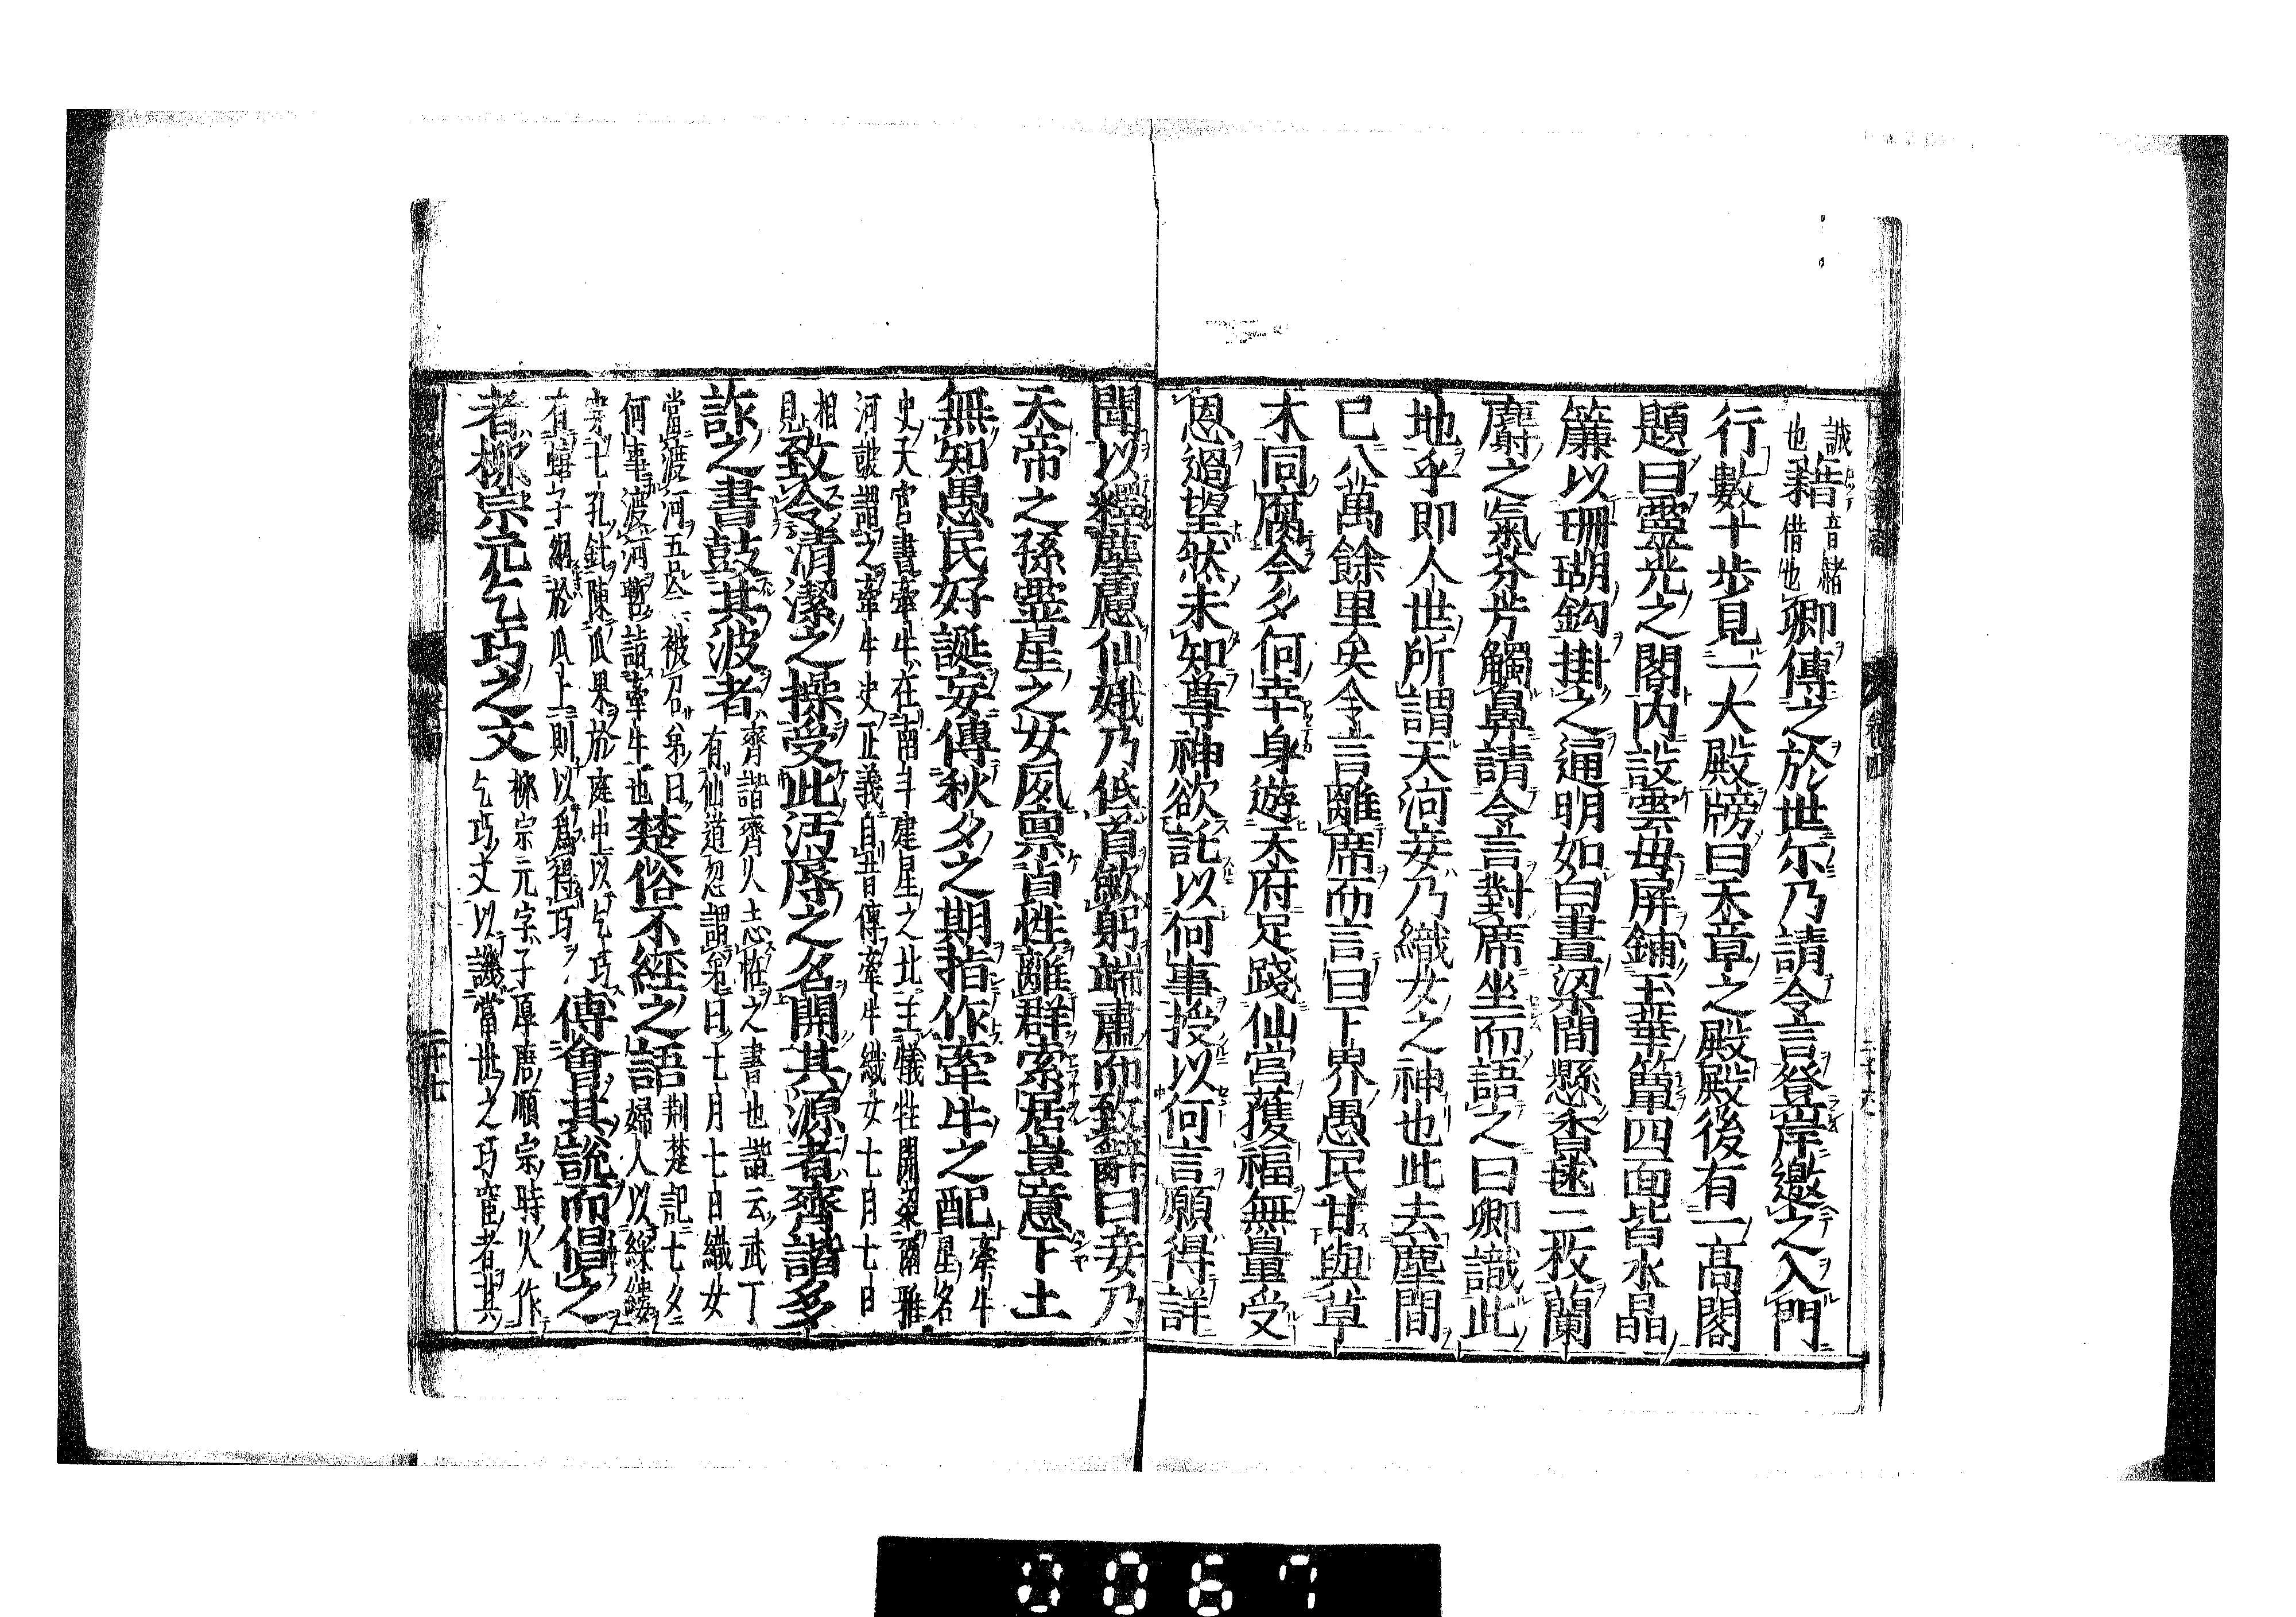 誠也藉音緒借也卿傳之於世尔乃請令言登岸邀之入門
行數十步見一大殿牓曰天章之殿殿後有一高閣
題曰靈光之閣内設雲母屏鋪玉華簟四面皆水晶
簾以珊瑚鈎掛之通明如白晝梁間懸香毬二枚蘭
麝之氣芬芳觸鼻請令言對席坐而語之曰卿識此
地乎即人世所謂天河妾乃織女之神也此去塵間
已八萬餘里矣令言離席而言曰下界愚民甘與草
木同腐今夕何幸身遊天府足踐仙宮獲福無量受
恩過望然未知尊神欲託以何事授以何言願得詳
聞以釋塵慮仙娥乃低首歛躬端肅而致辭曰妾乃
天帝之孫靈星之女夙禀貞性離群索居豈意下土
無知愚民好誕妄傳秋夕之期指作牽牛之配牽牛星名
史天官書牽牛在南斗建星之北主犧牲關梁爾雅
河鼓謂之牽牛史正義自昔傳牽牛織女七月七日
相見致令清潔之操受此汚辱之名開其源者齊諧多
詐之書鼓其波者齊諧齊人志恠之書也諧云武丁有仙道忽謂弟曰七月七日織女
當渡河吾已被召弟曰何事渡河暫詣牽牛也楚俗不経之語荆楚記七夕婦人以綵縷
穿七孔針陳瓜果於庭中以乞巧有蟢子網於瓜上則以爲得巧傳會其說而倡之
者柳宗元乞巧之文柳宗元字子厚唐順宗時人作乞巧文以譏當世之巧宦者其
0067